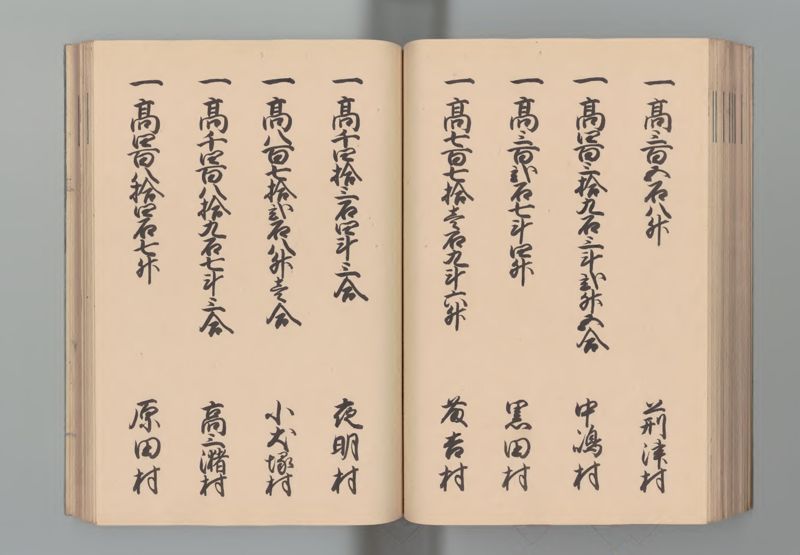 一高三百五石八升 荊津村
一高四百三拾九石三斗弐升五合 中嶋村
一高三百弐石七斗四升 黒田村
一高七百七拾壱石九斗六升 友吉村
一高千四拾三石四斗三合 夜明村
一高八百七拾弐石八升壱合 小犬塚村
一高千四百八拾九石七斗三合 高三潴村
一高四百八拾四石七升 原田村